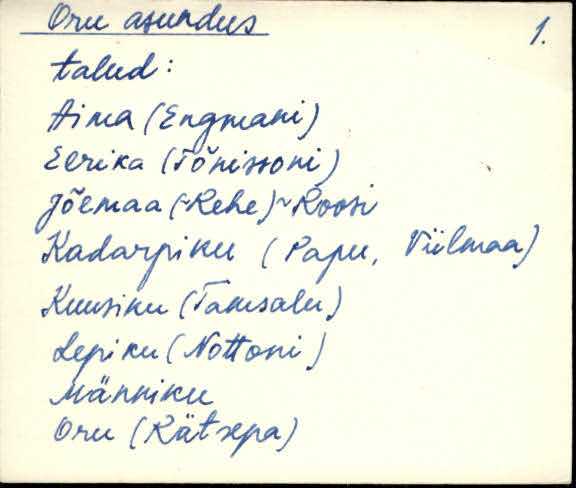 Oru asundus 1.
talud:
Aima (Engmani)
Eerika (Tõnissoni)
Jõemaa (~Rehe)~Roosi
Kadarpiku (Papu, Viilmaa)
Kuusiku (Tamsalu)
Lepiku (Nottoni)
Männiku
Oru (Rätsepa)